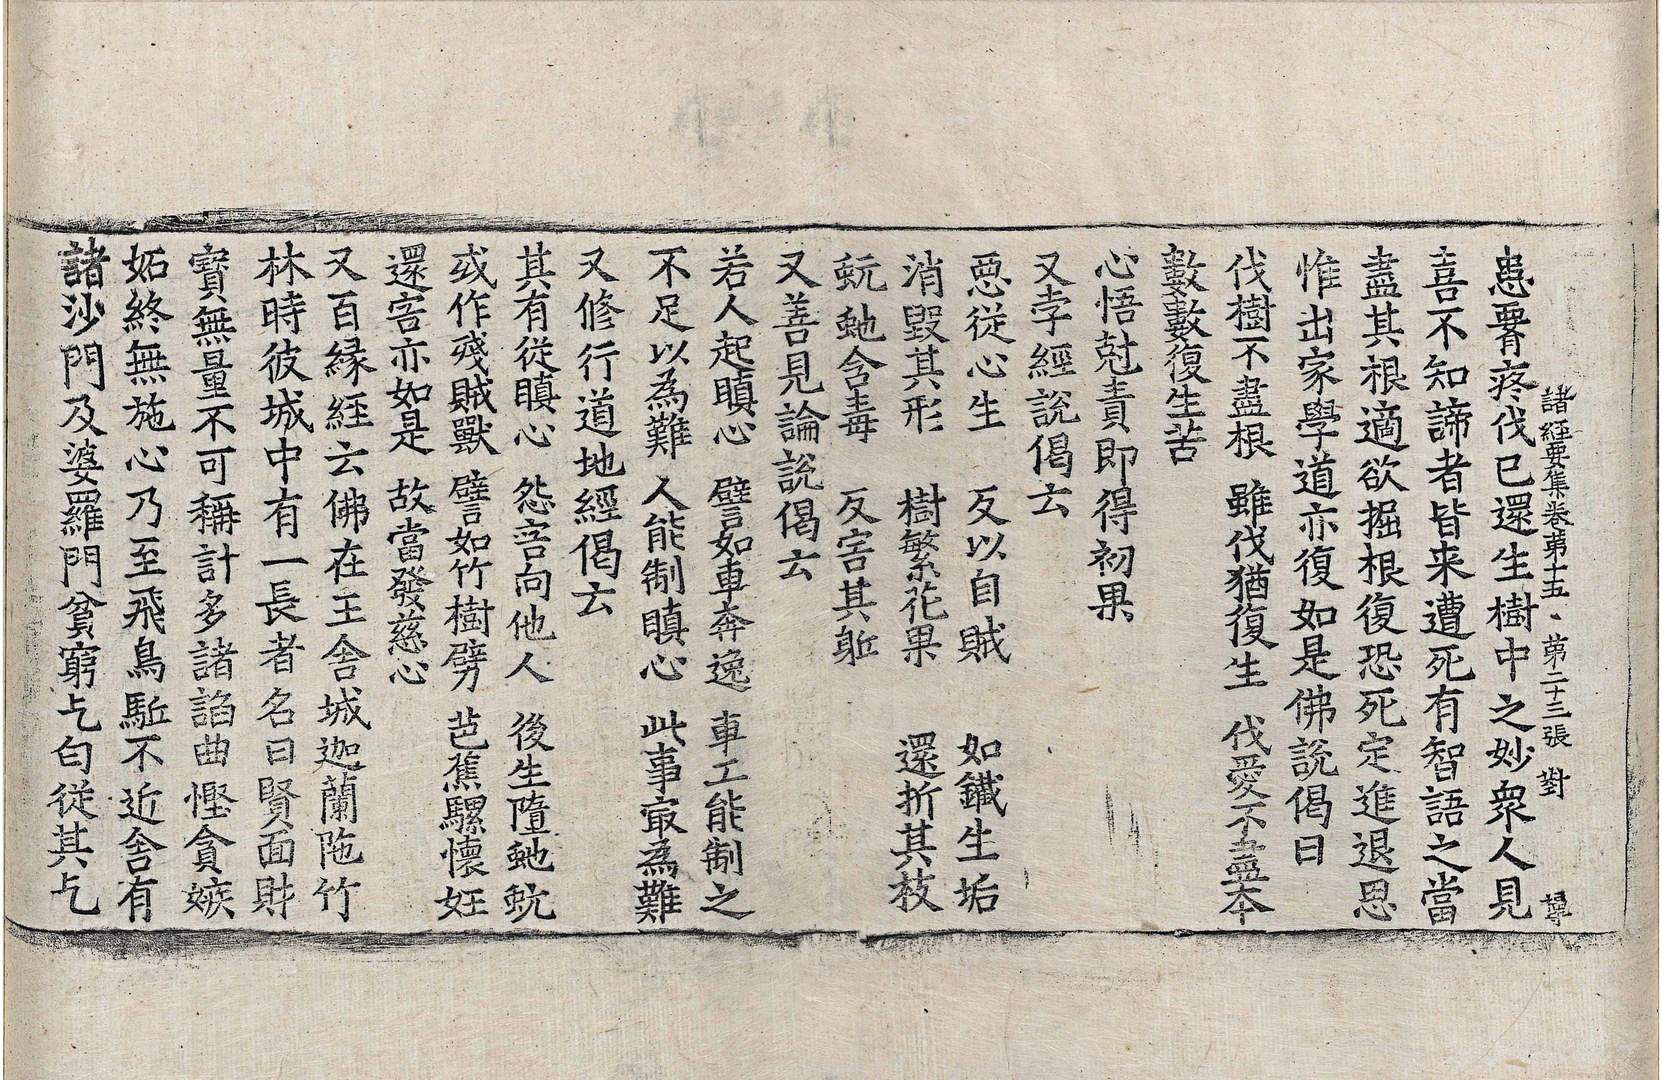 諸經要集卷第十五 第二十三張 對
患瞖疼伐已還生樹中之妙衆人見
喜不知諦者皆来遭死有智語之當
盡其根適欲掘根復恐死定進退思
惟出家學道亦復如是佛說偈曰
伐樹不盡根 雖伐猶復生 伐愛不盡本
數數復生苦
心悟尅責即得初果
又孛經說偈云
惡從心生 反以自賊 如鐵生垢
消毀其形 樹繁花果 還折其枝
蚖虵含毒 反害其軀
又善見論說偈云
若人起瞋心 譬如車奔逸 車工能制之
不足以為難 人能制瞋心 此事㝡為難
又修行道地經偈云
其有從瞋心 怨害向他人 後生墮虵蚖
或作殘賊獸 譬如竹樹劈 芭蕉騾懷妊
還害亦如是 故當發慈心
又百縁經云佛在王舍城迦蘭陁竹
林時彼城中有一長者名曰賢面財
寶無量不可稱計多諸諂曲慳貪嫉
妬終無施心乃至飛鳥駈不近舍有
諸沙門及婆羅門貧窮乞匃從其乞